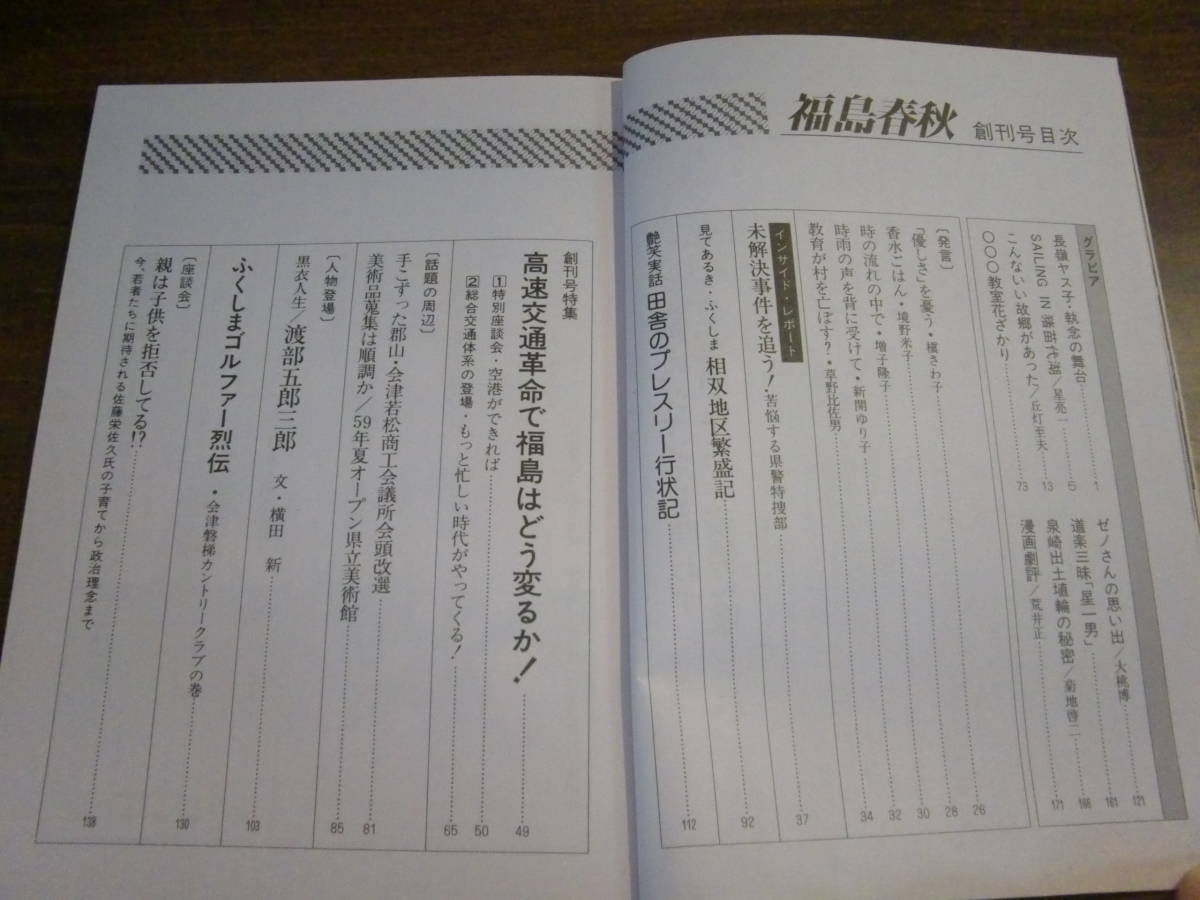 福島春秋 創刊号目次
グラビア
長嶺ヤス子・執念の舞台 1
SAILING IN 猪苗代湖/星亮一 5
こんないい故郷があった/丘灯至夫 13
〇〇〇教室花ざかり 73
ゼノさんの思い出/大桃博 121
道楽三昧「星一男」 161
泉崎出土埴輪の秘密/菊地啓二 166
漫画劇評/荒井正 171
〔発言〕
「優しさ」を憂う・槇さわ子 26
香水ごはん・境野米子 28
時の流れの中で・増子隆子 30
時雨の声を背に受けて・新開ゆり子 32
教育が村を亡ぼす?・草野比佐男 34
インサイド・レポート
未解決事件を追う!・苦悩する県警特捜部 37
見てあるき・ふくしま 相双地区繁盛記 92
艶笑実話 田舎のプレスリー行状記 112
創刊号特集
高速交通革命で福島はどう変るか! 49
1特別座談会・空港ができれば 50
2総合交通体系の登場・もっと忙しい時代がやってくる! 65
〔話題の周辺〕
手こずった郡山・会津若松商工会議所会頭改選 81
美術品蒐集は順調か/59年夏オープン県立美術館 85
〔人物登場〕
黒衣人生/渡部五郎三郎 文・横田 新 103
ふくしまゴルファー烈伝・会津磐梯カントリークラブの巻 130
〔座談会〕
親は子供を拒否してる!?
今、若者たちに期待される佐藤栄佐久氏の子育てから政治理念まで 138